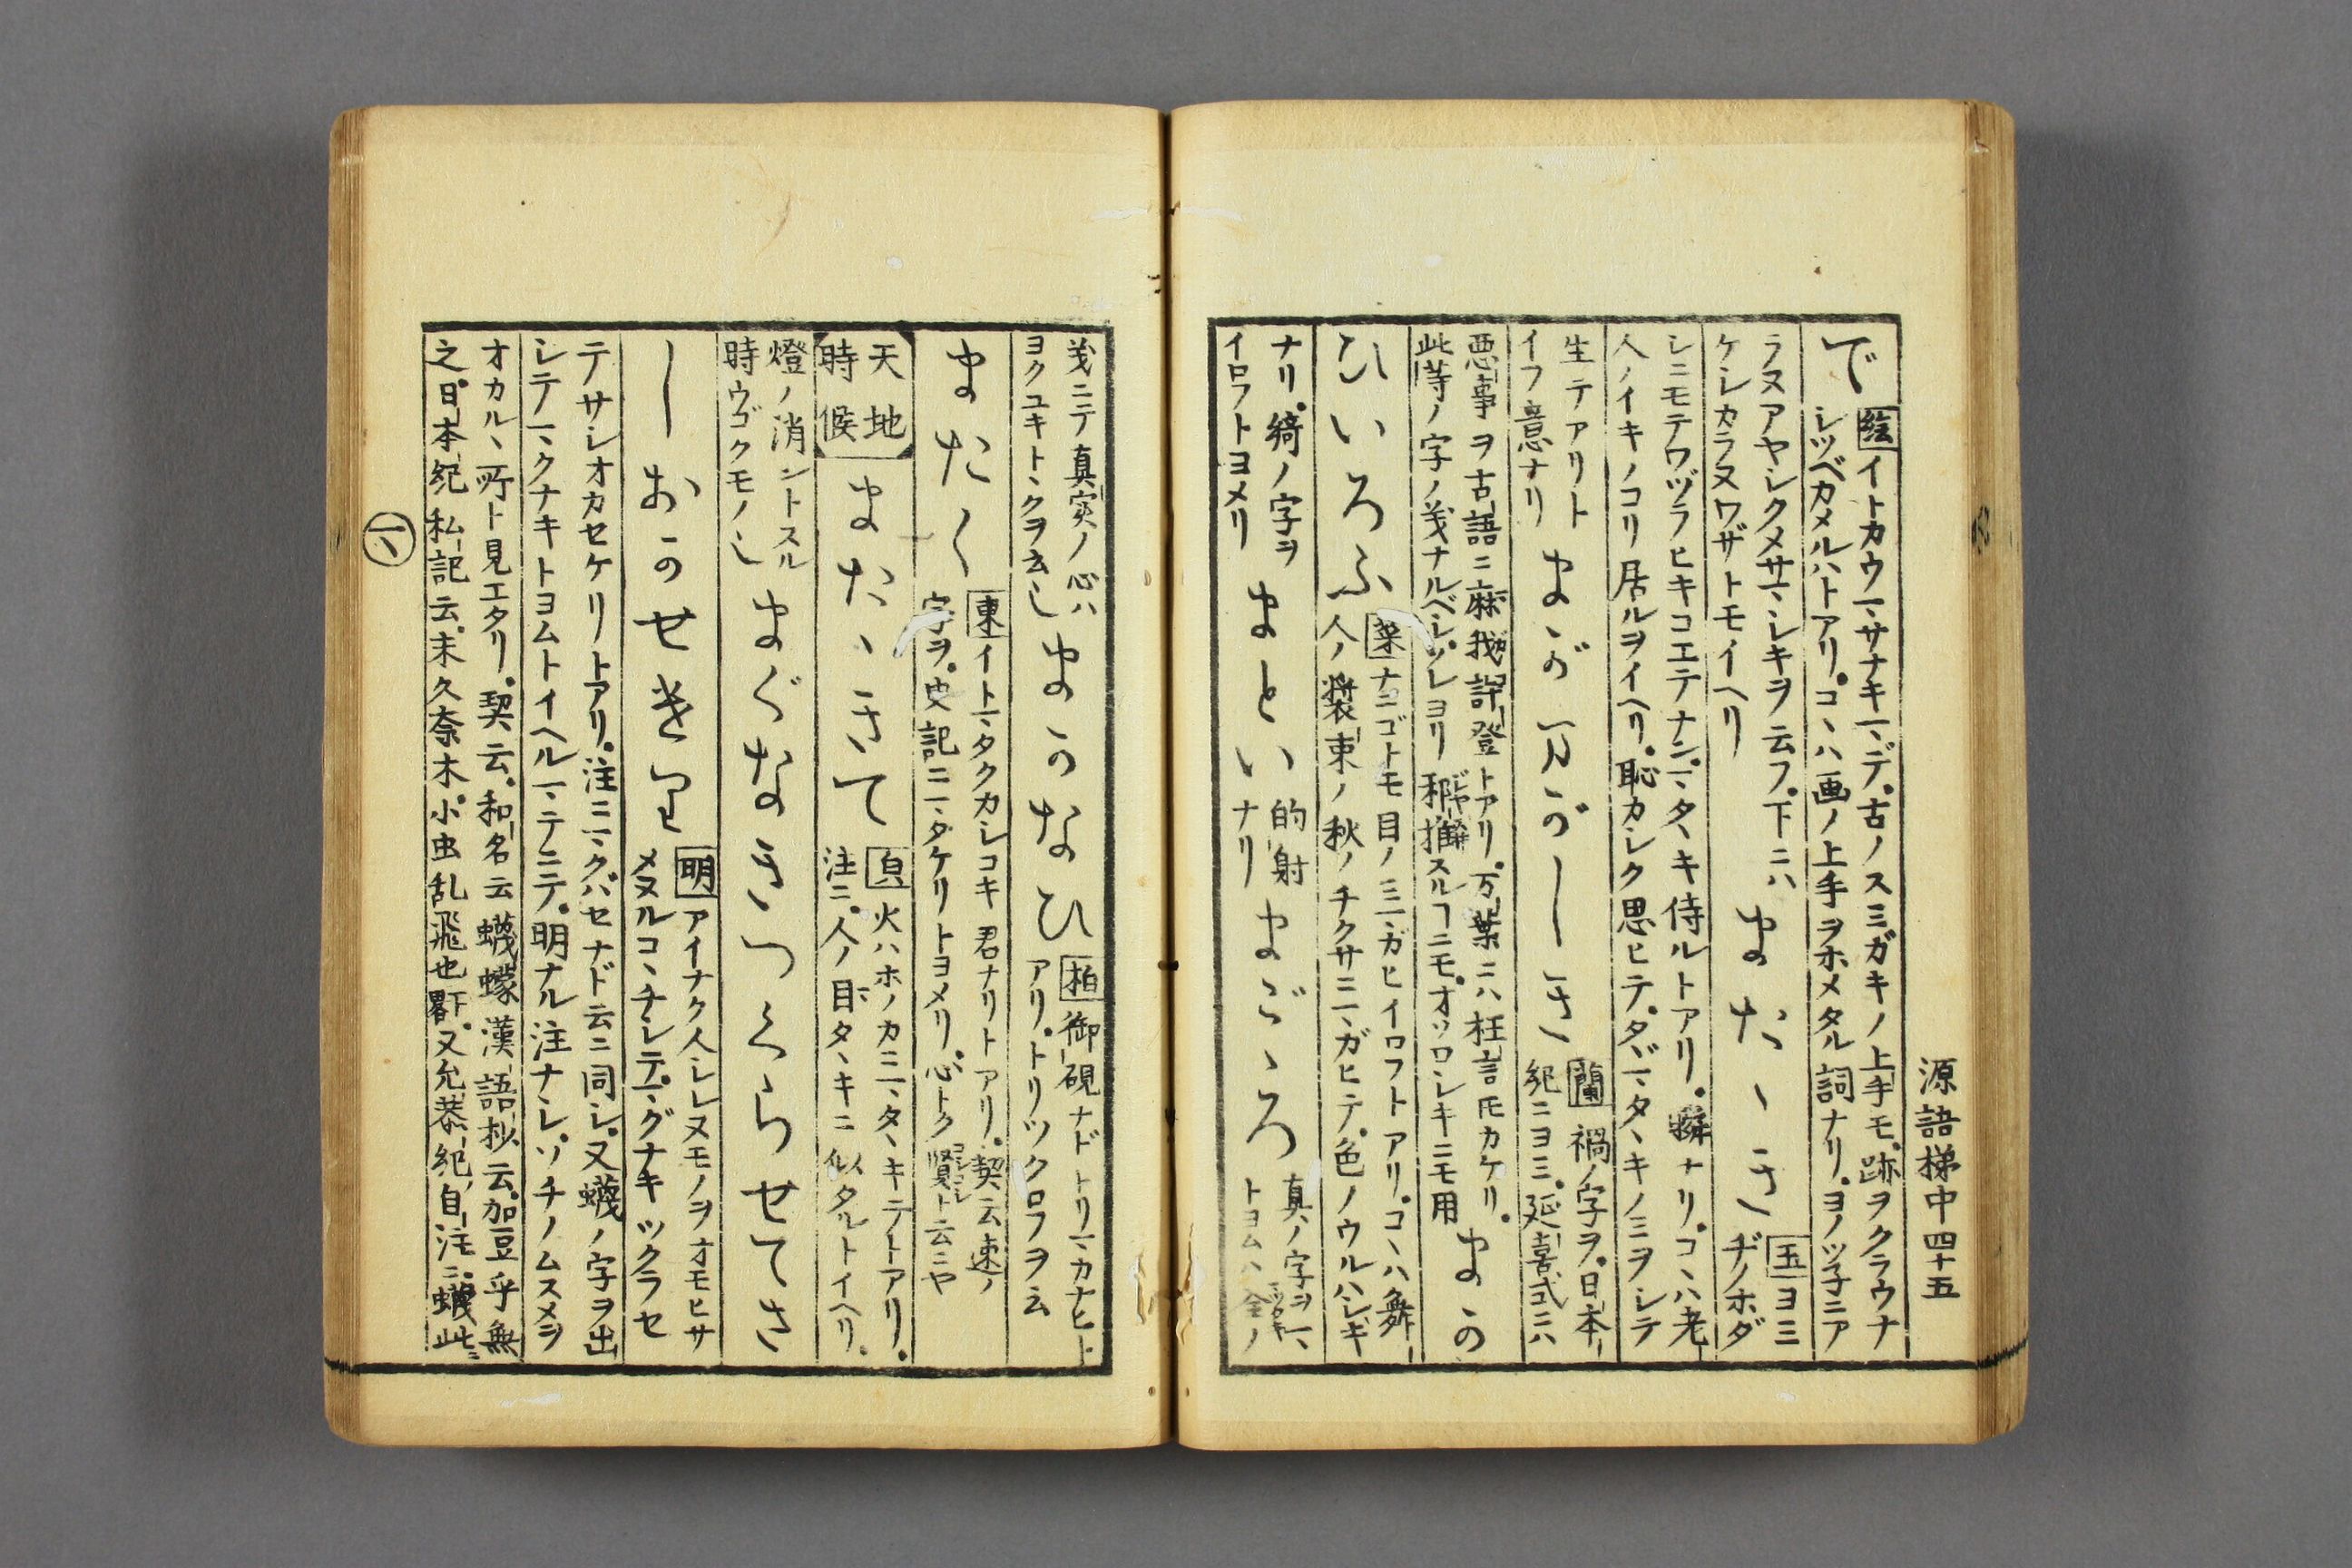 源語梯中 四十五
で 絵 イトカウマサナキマデ。古ノスミガキノ上手モ。跡ヲクラウナ
シツベカメルハトアリ。コヽハ画ノ上手ヲホメタル詞ナリ。ヨノツ子ニア
ラヌアヤシクメサマシキヲ云フ。下ニハ
ケシカラヌワザトモイヘリ
またゝき 玉 ヨミ
ヂノホダ
シニモテワヅラヒキコエテナン。マタヽキ侍ルトアリ。瞬ナリ。コヽハ老
人ノイキノコリ居ルヲイヘリ。恥カシク思ヒテ。タヾマタヽキノミヲシテ
生テアリト
イフ意ナリ
まが〳〵しき 蘭 禍ノ字ヲ。日本
紀ニヨミ。延喜式ニハ
悪事ヲ古語ニ麻我許登トアリ。万葉ニハ枉言トモカケリ。
此等ノ字ノ義ナルベシ。ソレヨリ邪推スルコニモ。オソロシキニモ用
まの
ひいろふ 葉 ナニゴトモ目ノミマガヒイロフトアリ。コヽハ舞
人ノ装束ノ秋ノチクサニマガヒテ。色ノウルハシキ
ナリ。綺ノ字ヲ
イロフトヨメリ
まとい 的射
ナリ
まごゝろ 真ノ字ヲマ
トヨムハ全ノ
義ニテ真実ノ心ハ
ヨクユキトヽクヲ云し
まかなひ 柏 御硯ナドトリマカナヒト
アリ。トリツクロフヲ云
またく 東 イトマタクカシコキ君ナリトアリ。契云速ノ
字ヲ。史記ニマダケリトヨメリ。心トク賢ト云ニヤ
天地
時候
またゝきて 火ハホノカニマタヽキテトアリ。
注ニ。人ノ目タヽキニ似タルトイヘリ。
燈ノ消ントスル
時ウゴクモノし
まぐなきつくらせてさ
しおかせきり 明 アイナク人シレヌモノヲオモヒサ
メヌルコヽチシテ。マグナキツクラセ
テサシオカセケリトアリ。注ニマクバセナド云ニ同シ。又蠛ノ字ヲ出
シテマクナキトヨムトイヘルマテニテ。明ナル注ナシ。ソチノムスメヲ
オカルヽ所ト見エタリ。契云。和名云蠛蠓漢語抄云。加豆乎無
之。日本紀私記云。末久奈木。小虫乱飛也畧下。又允恭紀自注ニ。蠛此ニ